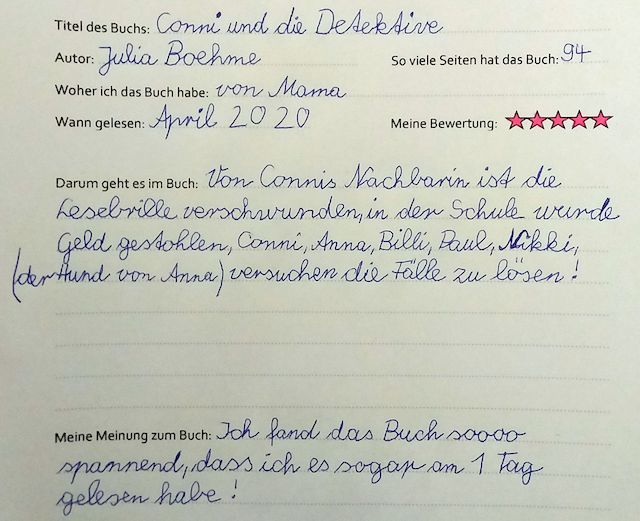 Titel des Buchs: Conni und die Detektive
Autor: Julia Boehme So viele Seiten hat das Buch: 94
Woher ich das Buch habe: von Mama
Wann gelesen: April 2020 Meine Bewertung:
Darum geht es im Buch: Von Connis Nachbarin ist die
Lesebrille verschwunden, in der Schule wurde
Geld gestohlen, Conni, Anna, Billi, Paul, Nikki,
(der Hund von Anna) versuchen die Fälle zu lösen!
Meine Meinung zum Buch: Ich fand das Buch soooo
spannend, dass ich es sogar am 1 Tag
gelesen habe!